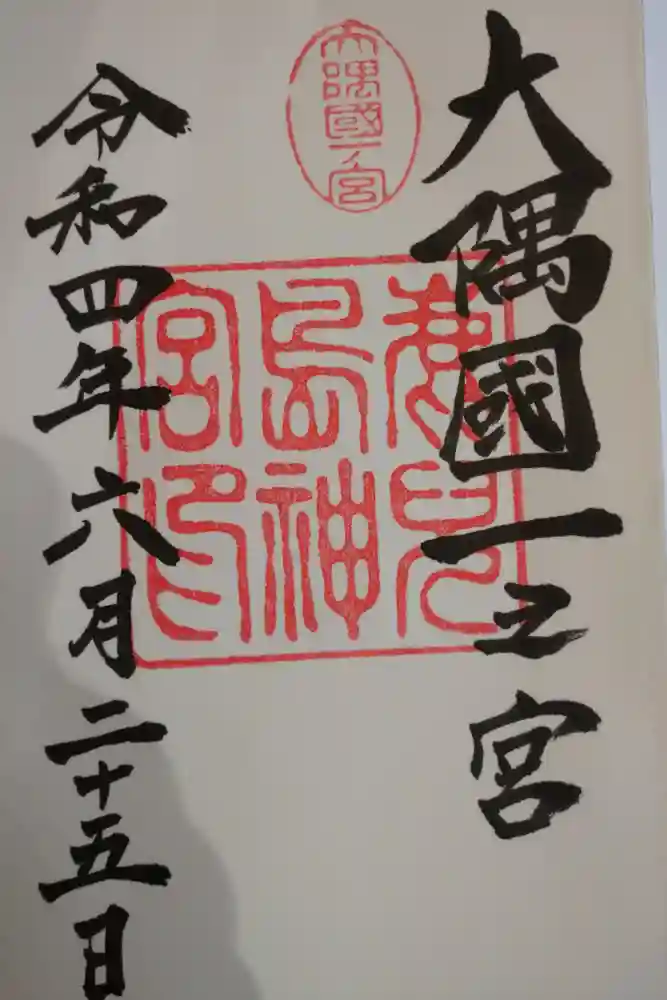 大隅國一之宮
大隅國一ノ宮
鹿兒
島神
宮印
令和四年六月二十五日